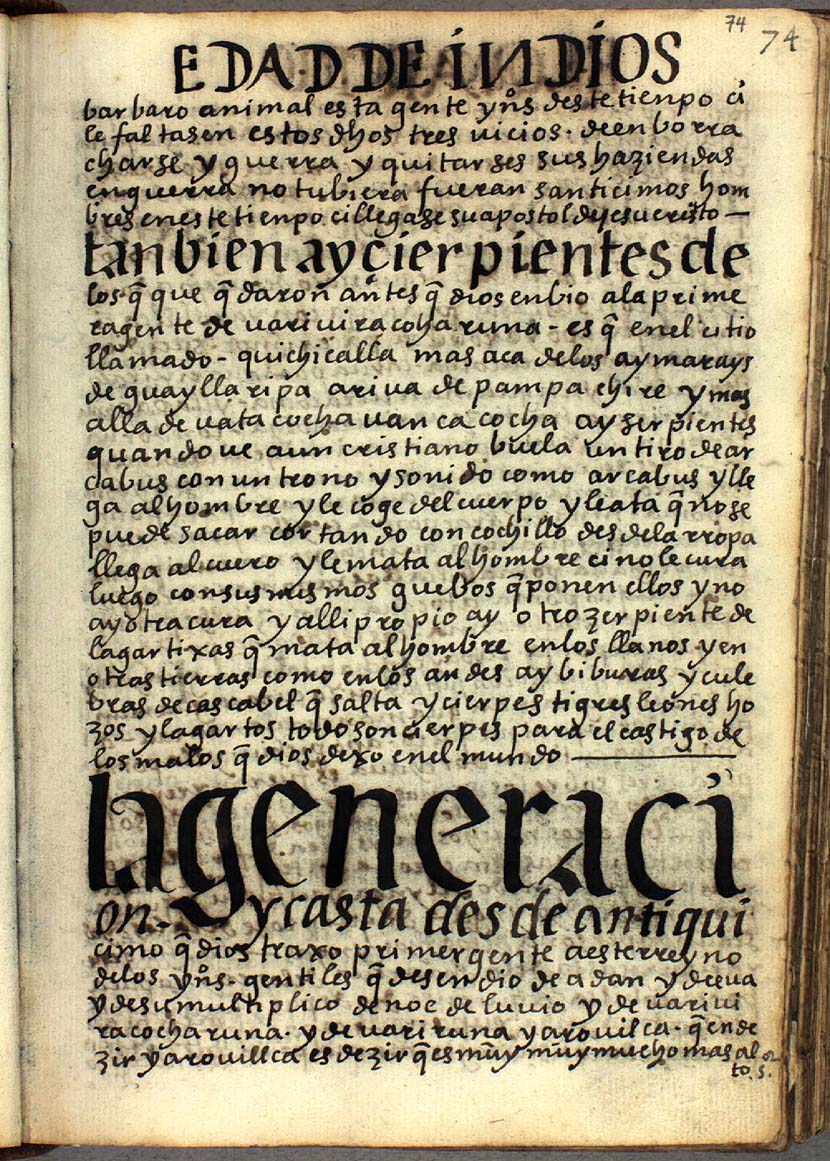 74 74
EDAD DE INDIOS
barbaro animal esta gente yn̄s deste tienpo ci
le faltasen estos dhos tres vicios. de enborra
charse y guerra y quitarses sus haziendas
en guerra no tubiera fueran santicimos hom
bres en este tienpo ci llegase su apostol de jesucristo —
tanbien ay cierpientes de
los q̄ que q̄daron antes q̄ dios enbio a la prime
ra gente de uari uiracocha runa - es q̄ en el citio
llamado - quichicalla mas aca de los aymarays
de guayllaripa ariua de pampachire y mas
alla de uatacocha uancacocha ay zerpientes
quando ve a un cristiano buela un tiro de ar
cabus con un trono y sonido como arcabus y lle
ga al hombre y le coge del cuerpo y le ata q̄ no se
puede sacar cortando con cochillo desde la rropa
llega al cuero y le mata al hombre ci no le cura
luego con sus mismos guebos q̄ ponen ellos y no
ay otra cura y alli propio ay otro zerpiente de
lagartixas q̄ mata al hombre en los llanos y en
otras tierras como en los andes ay biburas y cule
bras de cascabel q̄ salta y cierpes tigres leones ho
zos y lagartos todo son cierpes para el castigo de
los malos q̄ dios dexo en el mundo —
la generaci
on - y casta desde antiqui
cimo q̄ dios traxo primer gente a esterreyno
de los yn̄s - gentiles q̄ desendio de adan y de eua
y de su multiplico de noe deluuio y de uari ui
racocha runa. y de uari runa yarovilca. q̄ en de
zir yarovillca es dezir q̄ es muy muy mucho mas al
to. s.